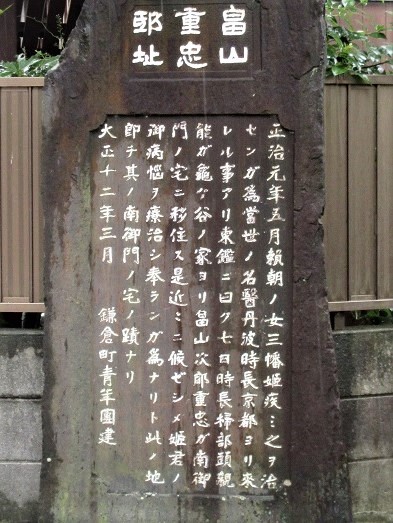 畠山
重忠
邸址
正治元年五月頼朝ノ女三幡姫疾ミ之ヲ治
センガ為當世ノ名醫丹波時長京都ヨリ来
レル事アリ東鑑ニ曰ク七日時長掃部頭親
能ガ龜ケ谷ノ家ヨリ畠山次郎重忠ガ南御
門ノ宅ニ移住ス是近々ニ候ゼシメ姫君ノ
御病惱ヲ療治シ奉ランガ為ナリト此ノ地
即チ其ノ南御門ノ宅ノ蹟ナリ
大正十二年三月 鎌倉町青年團建